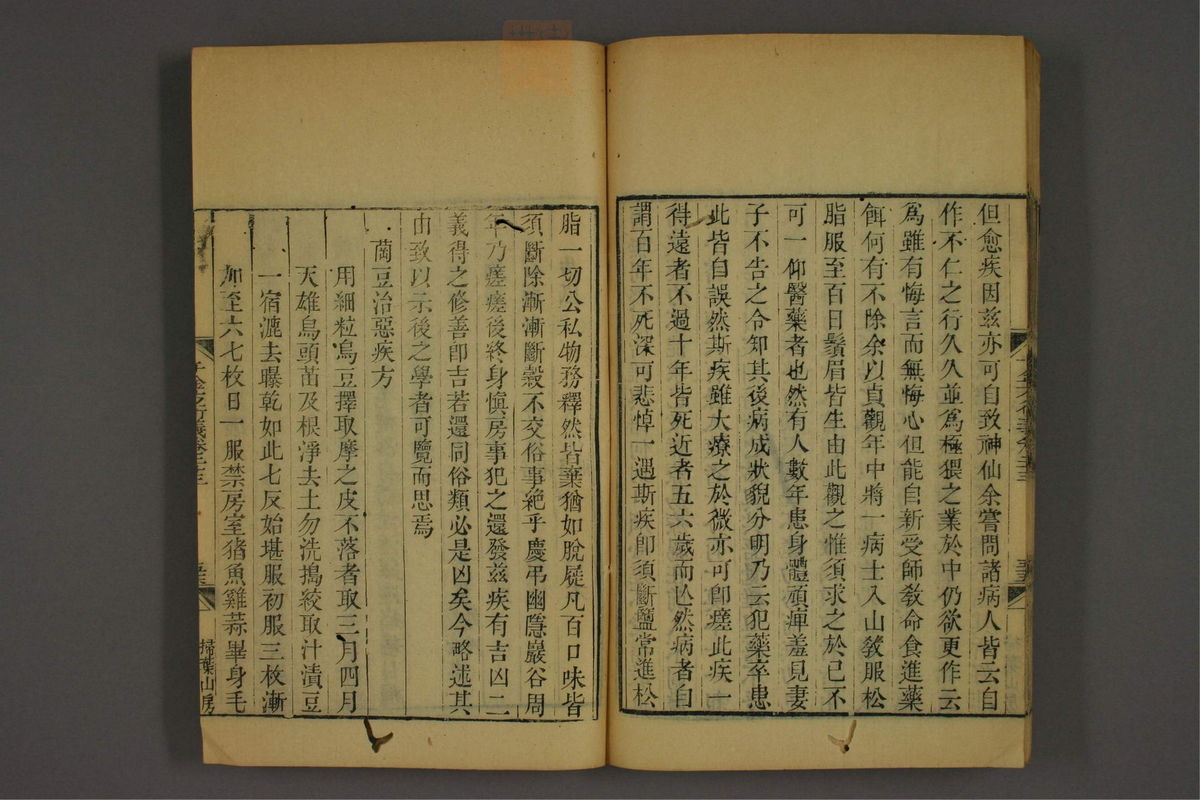 但愈疾因茲亦可自致神仙余嘗問諸病人皆云自
作不仁之行久久並爲極猥之業於中仍欲更作云
爲雖有悔言而無悔心但能自新受師敎命食進藥
餌何有不除余以貞觀年中將一病士入山敎服松
脂服至百日鬚眉皆生由此觀之惟須求之於己不
可一仰醫藥者也然有人數年患身體頑痺羞見妻
子不告之令知其後病成狀貌分明乃云犯藥卒患
此皆自誤然斯疾雖大療之於微亦可卽瘥此疾一
得遠者不過十年皆死近者五六歲而亾然病者自
謂百年不死深可悲悼一遇斯疾卽須斷鹽常進松
脂一切公私物務釋然皆棄猶如脫屣凡百口味皆
須斷除漸漸斷穀不交俗事絶乎慶弔幽隱巖谷周
年乃瘥瘥後終身愼房事犯之還發茲疾有吉凶二
義得之修善卽吉若還同俗類必是凶矣今略述其
由致以示後之學者可覽而思焉
䕡豆治惡疾方
用細粒烏豆擇取摩之皮不落者取三月四月
天雄烏頭苗及根淨去土勿洗搗絞取汁漬豆
一宿漉去曝乾如此七反始堪服初服三枚漸
加至六七枚日一服禁房室猪魚雞蒜畢身毛
掃葉山房